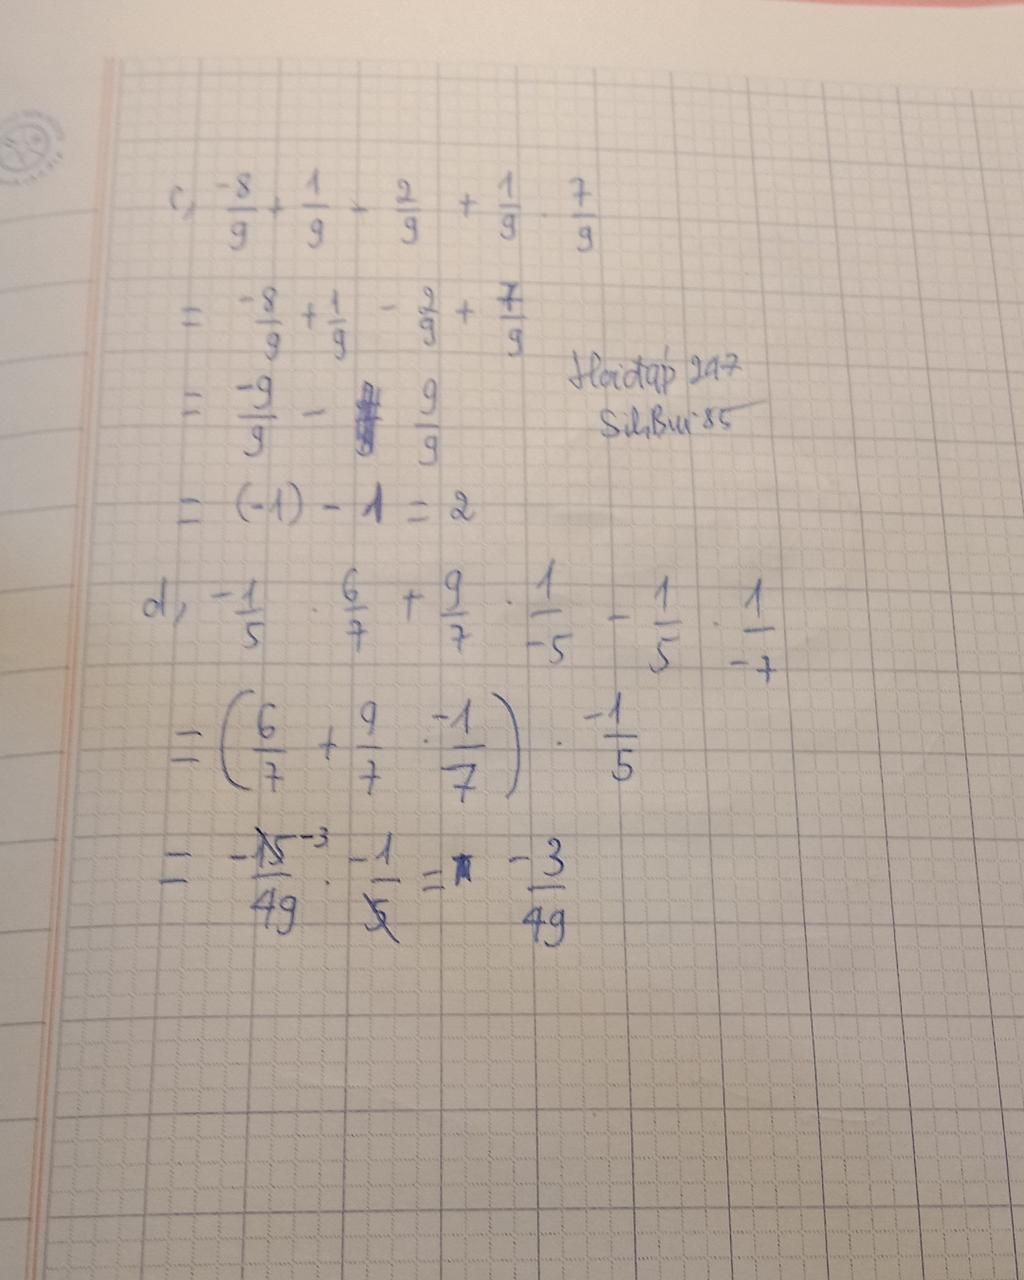 c, -8/9 + 1/9 - 2/9 + 1/9 . 7/9
= -8/9 + 1/9 - 2/9 + 7/9
= -9/9 - 9/9
Hoidap 247
SihBui85
= (-1) - 1 = 2
d, -1/5 . 6/7 + 9/7 . 1/-5 - 1/5 . 1/-7
= (6/7 + 9/7 . -1/7) . -1/5
= -15/49 -3 . -1/5 = -3/49